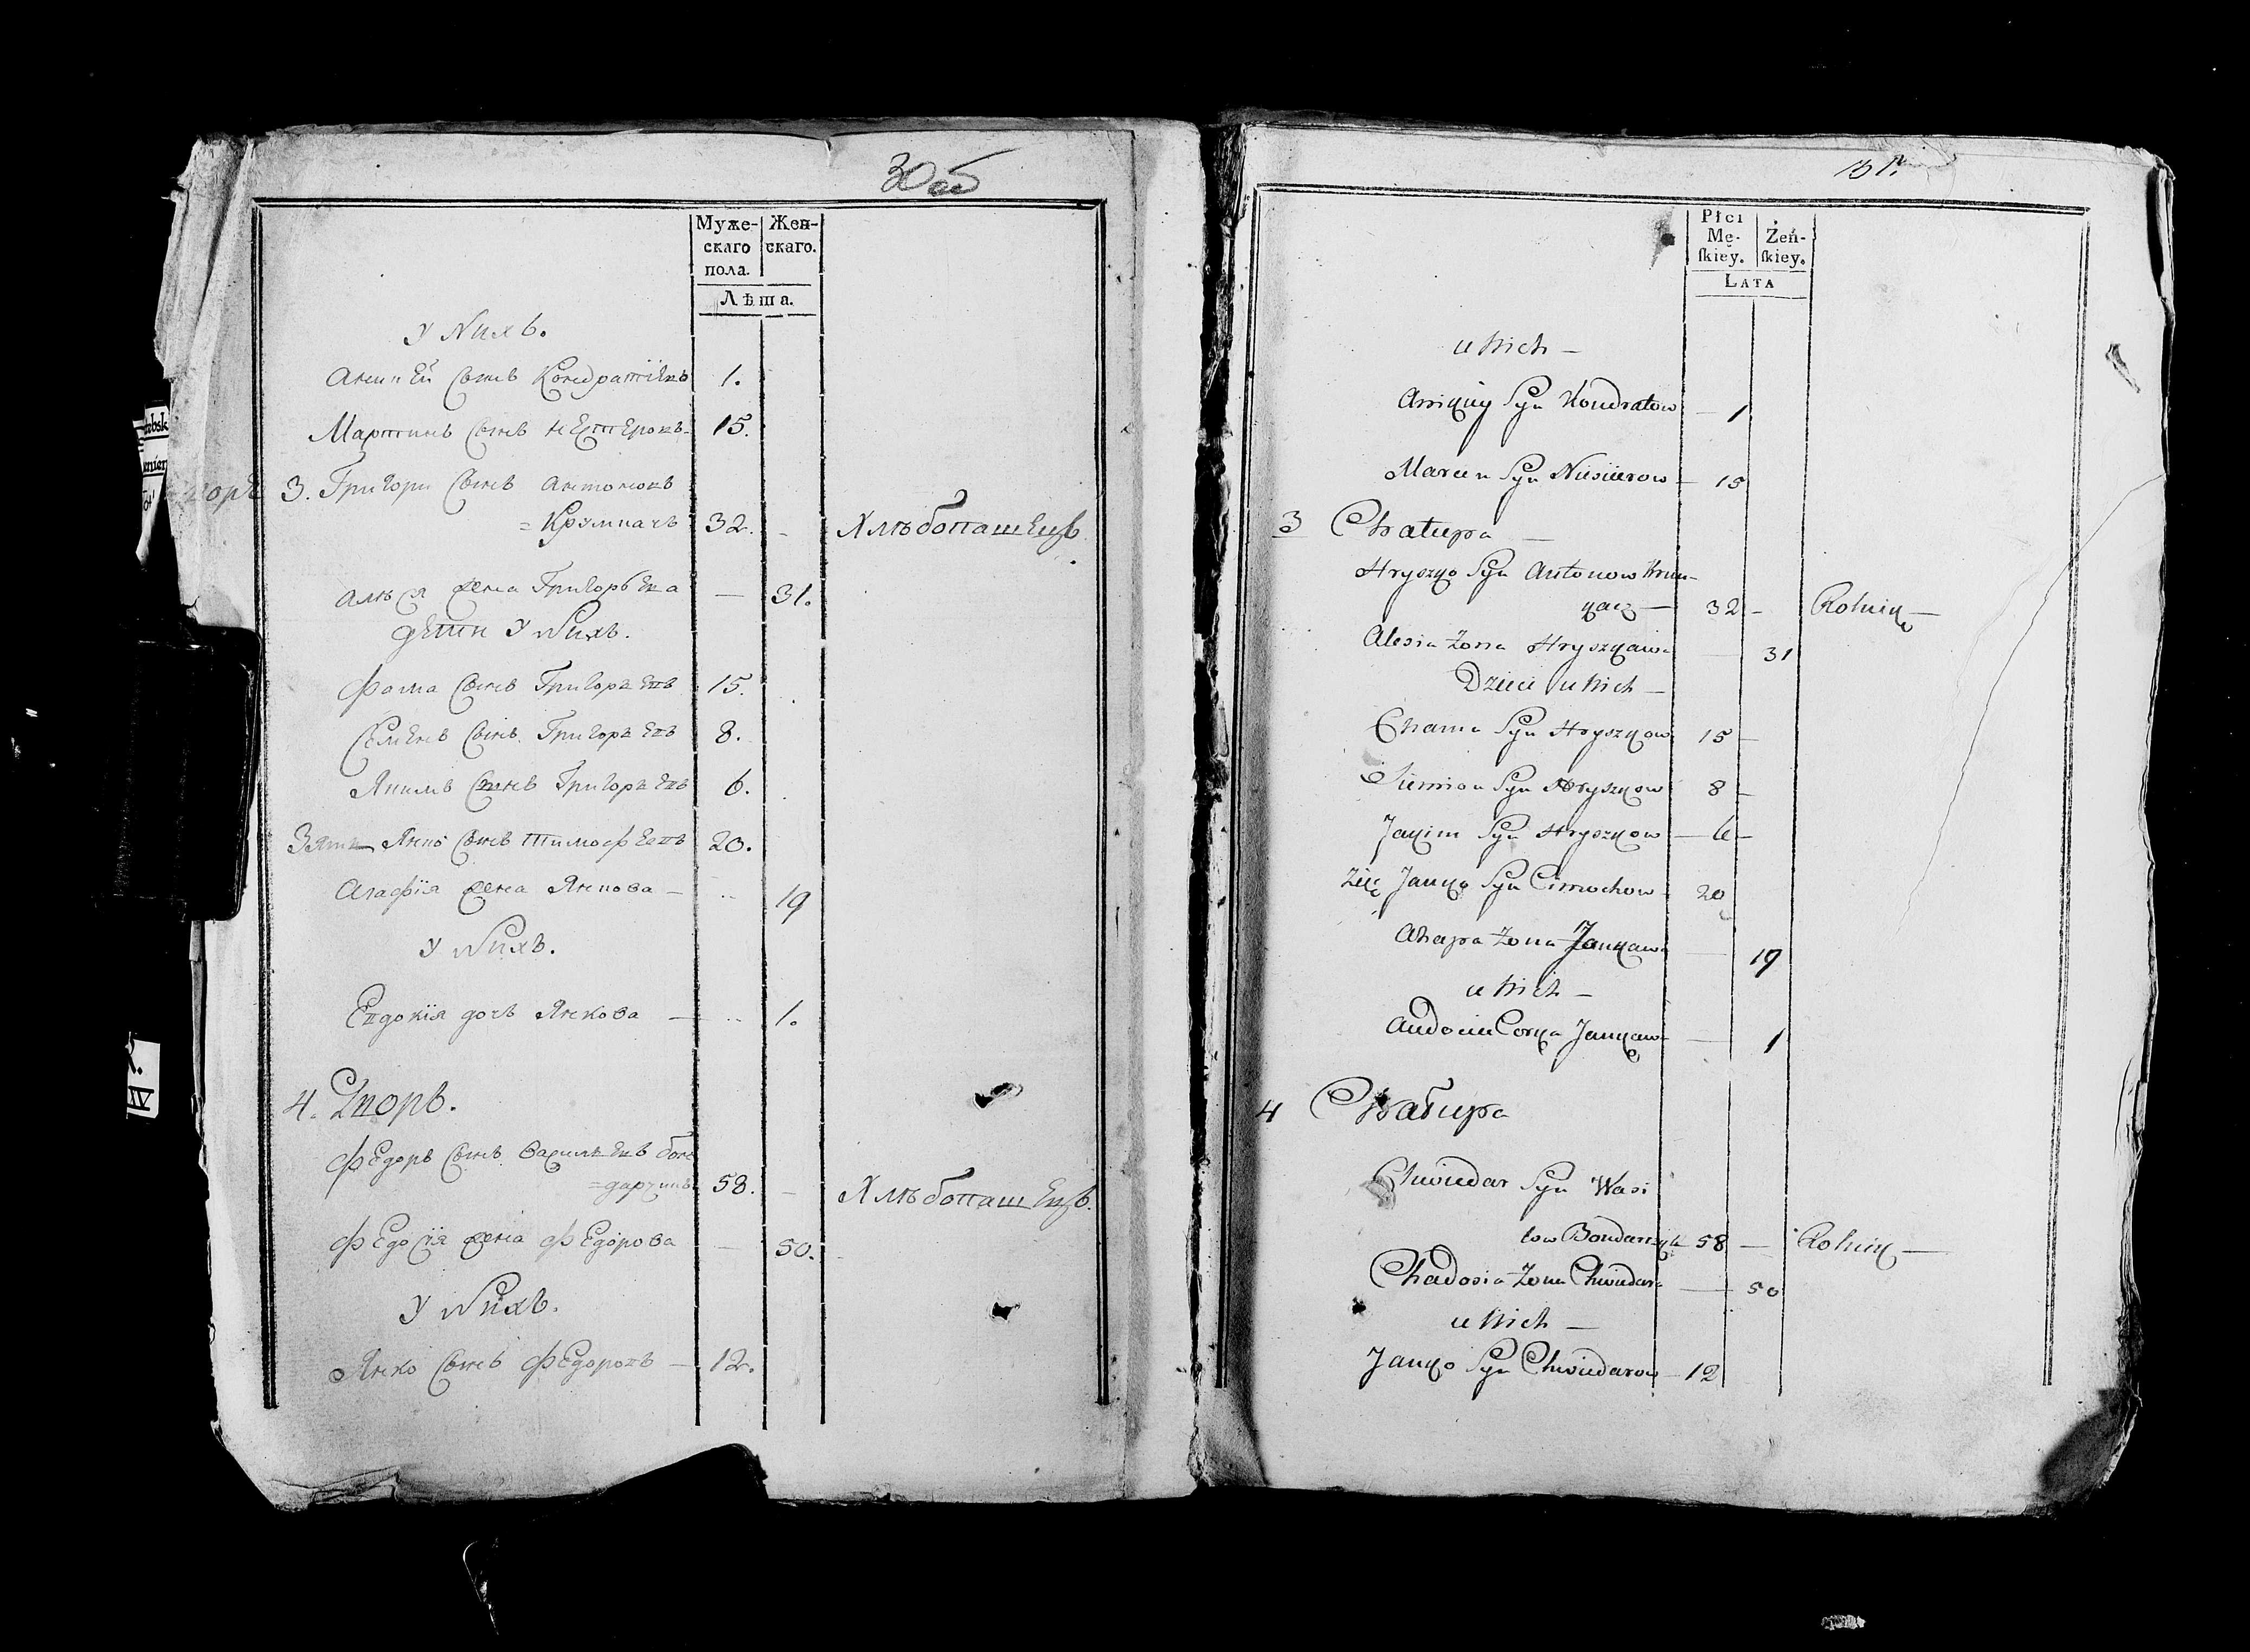 30 об
Муже-
скаго
пола.
Жен-
скаго.
Лѣта.
у Nихъ.
Аникей сынъ Кондратіевъ 1.
Мартинъ сынъ Нестеровъ 15.
3. Григори сынъ Антоновъ
=Крумкачъ 32. - Хлѣбопашецъ
Алѣся жена Григорьева — 31.
дети у Nихъ.
Фома сынъ Григорьевъ 15.
Семенъ сынъ Григорьевъ 8.
Якимъ сынъ Григорьевъ 6.
Зять Янко сынъ Тимофеевъ 20.
Агафія жена Янкова — 19
у Nихъ.
Евдокія дочь Янкова — 1.
4. Дворъ.
Федоръ сынъ Васильевъ Бон
=дарчикъ 58. - Хлѣбопашецъ.
Федосія жена Федорова — 50.
у Nихъ.
Янко сынъ Федоровъ — 12.
31.
Płci
Mę-
ſkiey.
Żeń-
ſkiey.
LATA
u Nich —
Anikiy Syn Kondratow — 1
Marcin Syn Niesterow — 15
3 Chałupa —
Hryszko Syn Antonow Krum-
kacz — 32 — Rolnik —
Alesia Zona Hryszkowa — 31
Dzieci u Nich —
Chama Syn Hryszkow 15 —
Siemion Syn Hryszkow 8 —
Jakim Syn Hryszkow — 6 —
Zięć Janko Syn Cimochow — 20
Ahapa Zona Jankowa — 19
u Nich —
Audocia Corka Jankowa — 1
4 Chałupa
Chwiedar Syn Wasi
low Bondarczyk 58 — Rolnik —
Chadosia Zona Chwiedara — 50
u Nich —
Janko Syn Chwiedarow — 12